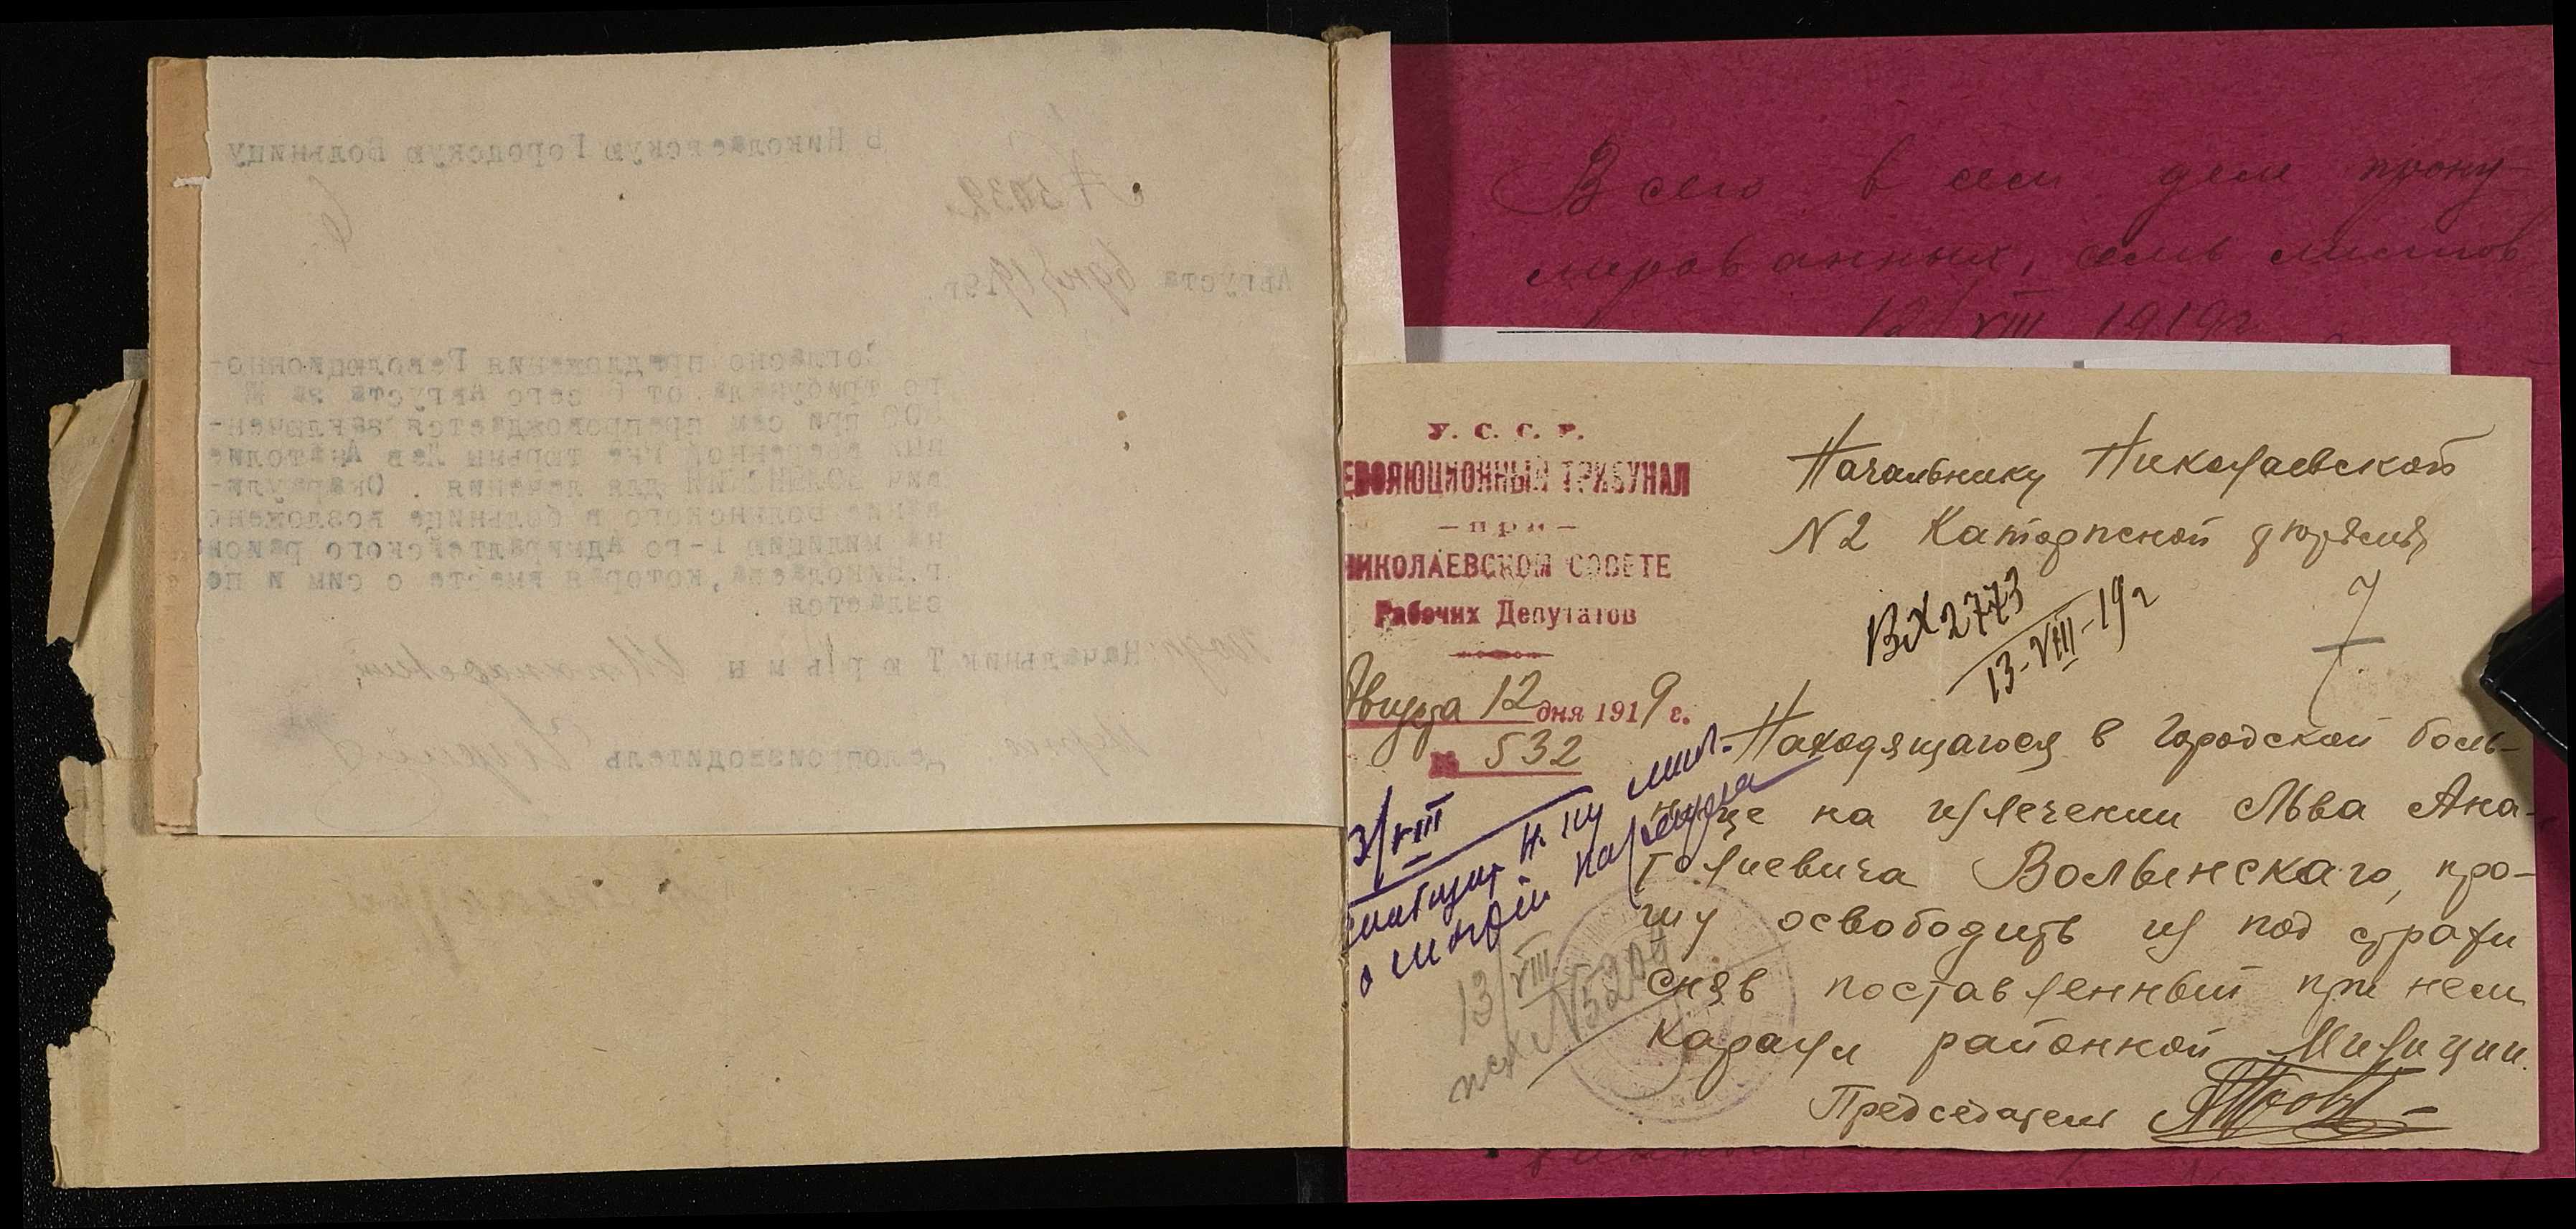 В Николаевскую Городскую Больницу
6
№ 5032
Августа 6 дня 1919г.
Согласно предложения Революционно-
го трибунала от 6 сего Августа за №
500 при сем препровождается заключен-
ный вверенной мне тюрьмы Лев Анатолие
вич ВОЛЫНСКИЙ для лечения. Окараули-
вание Волынского в больнице возложено
на милицию 1-го Адмиралтейского района
г.Николаева, которая вместе с сим и пе
Начальник Тюрьмы
Делопроизводитель
Всего в сем деле прону-
мерованных, семь листов
12/VIII 1919г
У. С. С. Р.
ЕВОЛЮЦИОННЫЙ ТРИБУНАЛ
— при —
НИКОЛАЕВСКОМ СОВЕТЕ
Рабочих Депутатов
Августа 12 дня 1919 г.
№ 532
Начальнику Николаевской
N2 Каторжской тюрьмы
ВХ 2773
13-VIII-19г
7
Находящагося в городской боль-
нице на излечении Льва Ана-
толиевича Волынскаго, про-
шу освободить из под стражи
сняв поставленный при нем
караул районной Милиции.
Председатель
3/VIII
мил.
караула
13/VIII
исх N5204